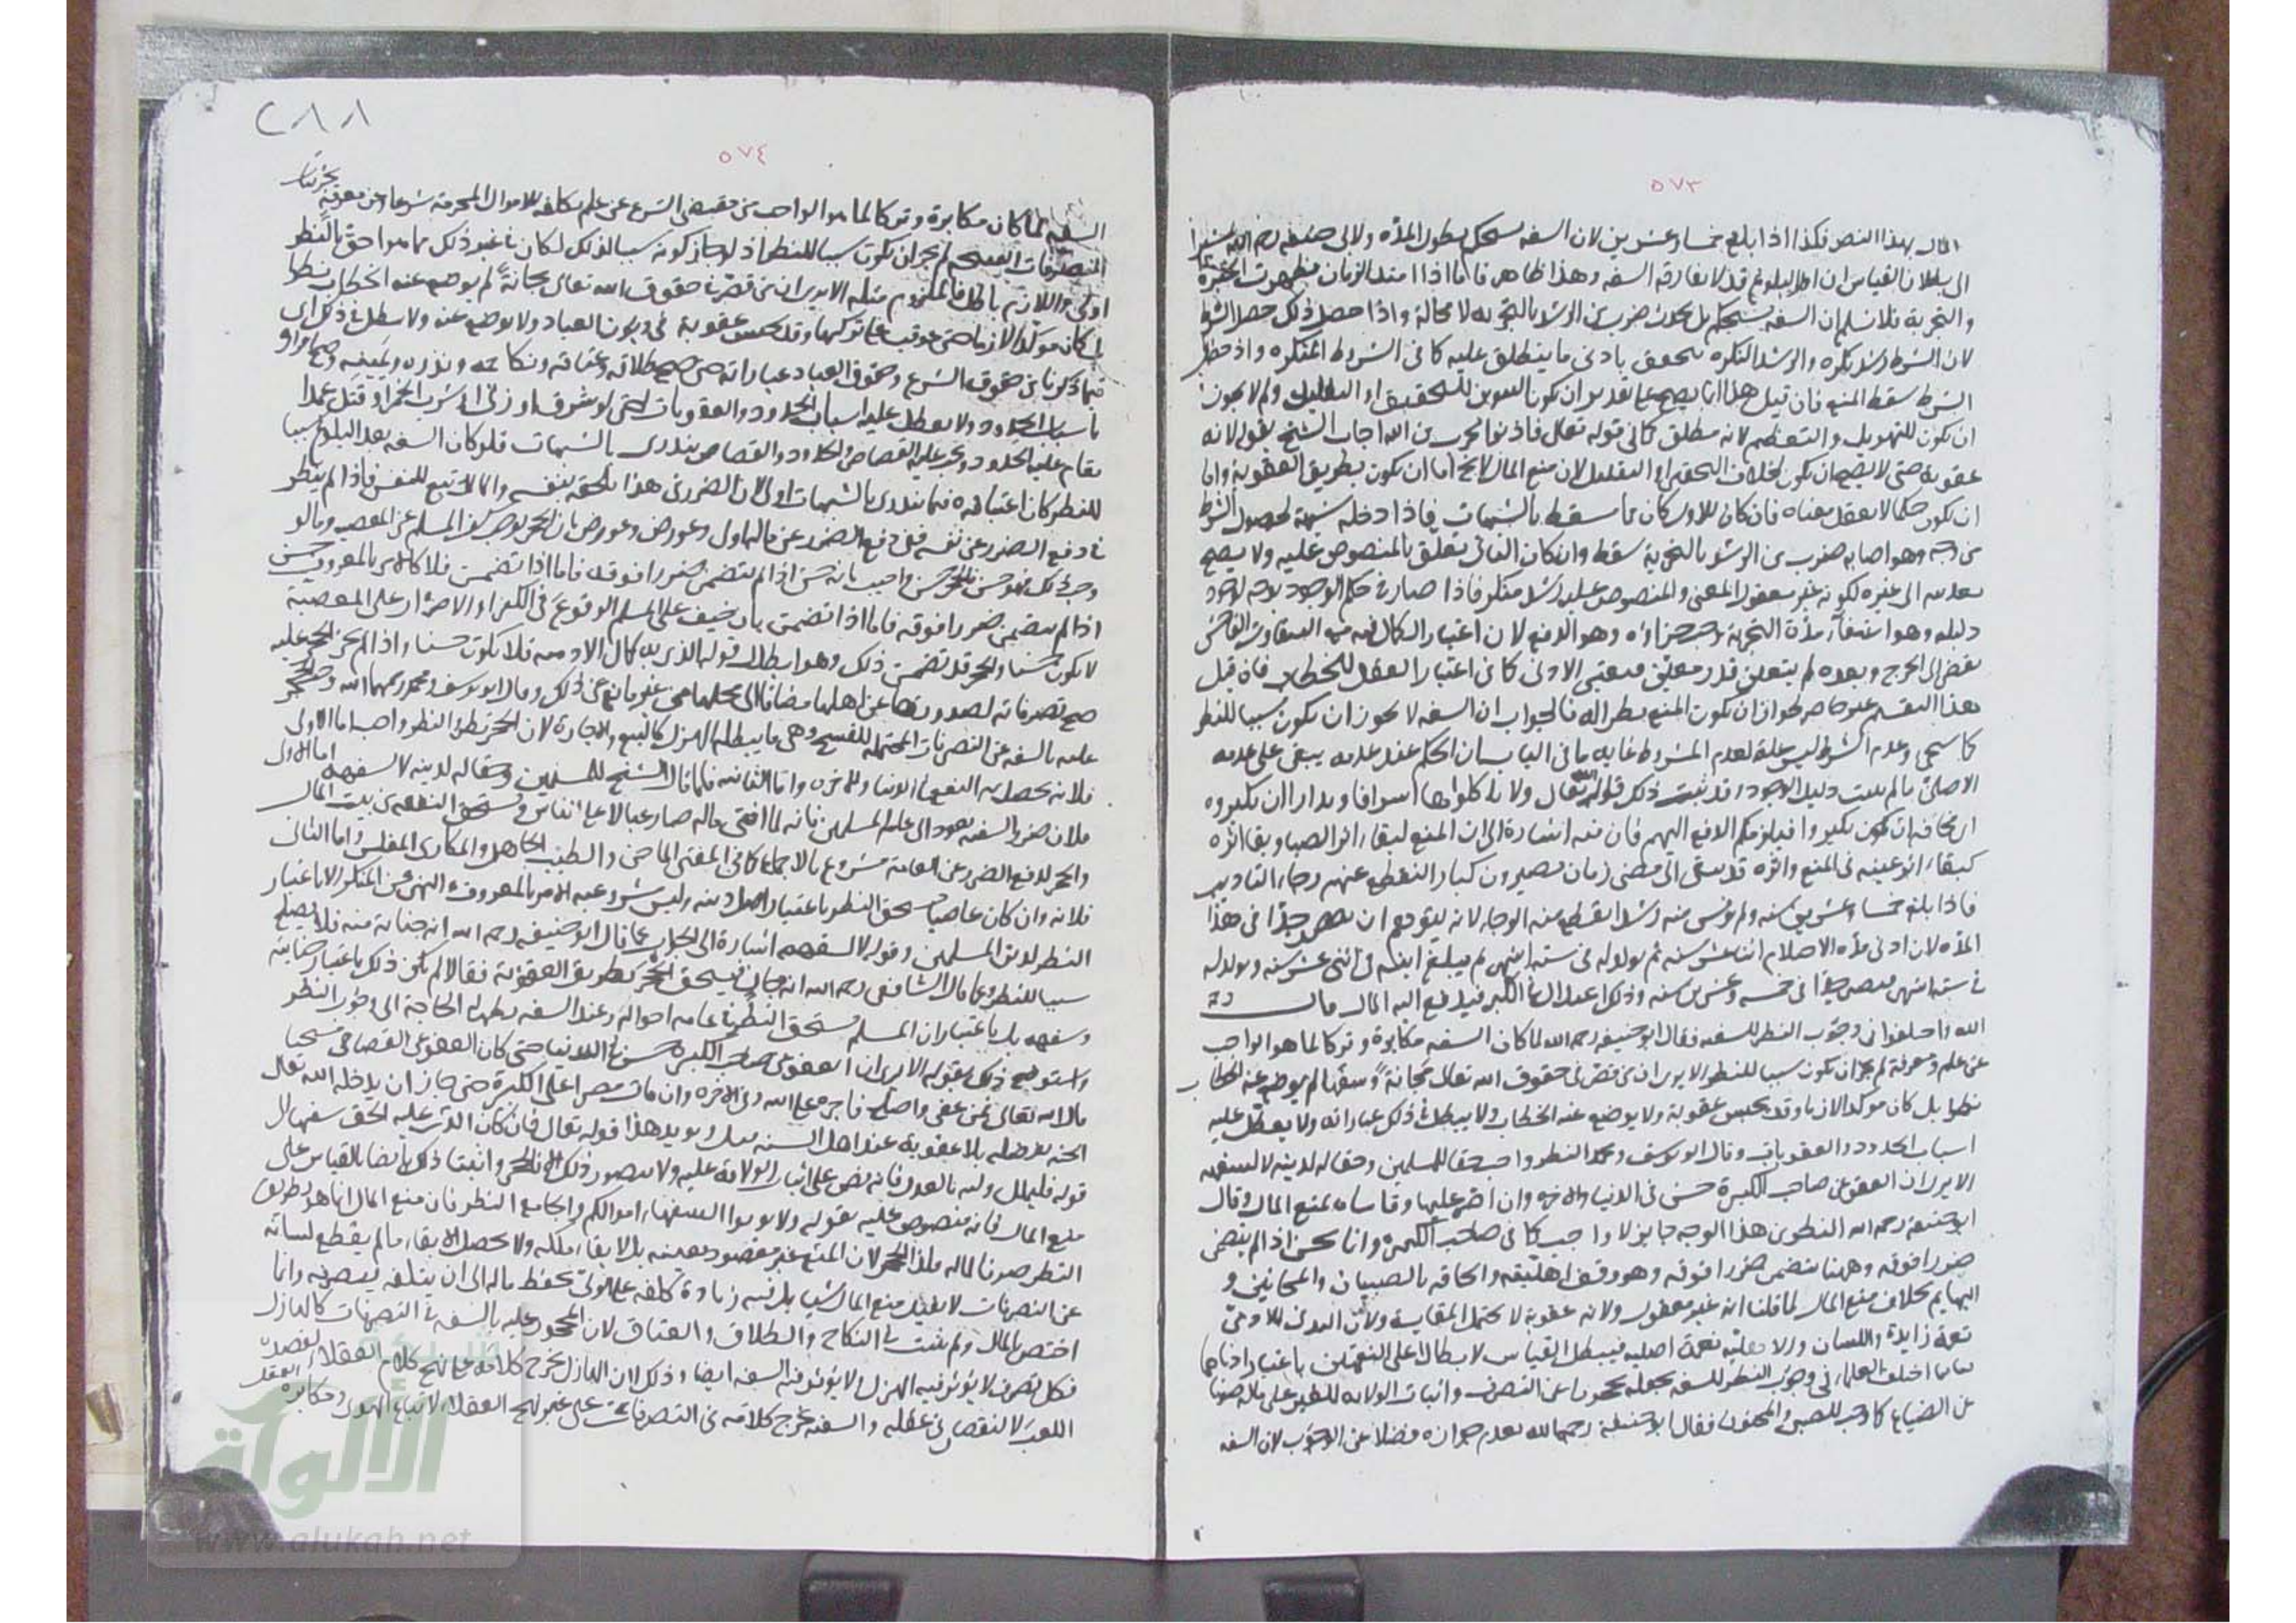 ٥٧٣
المال بهذا النص فكذا اذا بلغ خمسا وعشرين لان السفه يستحكم بطول المدة ولابى حنيفه رضى الله
الى بطلان القياس ان اول البلوغ قد لا يفارقه السفه وهذا ظاهر فاما اذا امتد الزمان وظهرت الخبرة
والتجربة فلا نسلم ان السفه يستحكم بل يحدث ضرب من الرشد بالتجربه لا محالة واذا حصل ذلك حصل الشرط
لان الشرط رشد نكره والرشد النكره يتحقق بادنى ما ينطلق عليه كما فى الشروط المنكره واذ حصل
الشرط سقط المنع فان قيل هذا انما يصح على تقدير ان يكون التنوين للتحقير او التقليل ولم لا يجوز
ان يكون للتهويل والتعظيم لانه مطلق كما فى قوله تعالى فاذنوا بحرب من الله اجاب الشيخ بقوله لانه
عقوبة حتى لا يصح ان يكون بخلاف التحقير او التقليل لان منع المال لا يخ اما ان يكون بطريق العقوبة واما
ان يكون حكما لا يعقل معناه فان كان للاول كان مما يسقط بالشبهات فاذا دخله شبهة بحصول الشرط
من وجه وهو اصابه ضرب من الرشد بالتجربة سقط وان كان الثانى يتعلق بالمنصوص عليه ولا يصح
تعديته الى غيره لكونه غير معقول المعنى والمنصوص عليه رشد منكر فاذا صار فى حكم الوجود
دليله وهو استيفاء مدة التجربة وجب جزاؤه وهو الدفع لان اعتبار الكمال فيه مع التفاوت الفاحش
يفضى الى الحرج وبعده لم يتعلق قدر معين فيعتبر الادنى كما فى اعتبار العقل للخطاب فان قيل
هذا التقسيم غير حاصر لجواز ان يكون المنع بطر اله فالجواب ان السفه لا يجوز ان يكون سببا للنظر
كما سيجى وعدم الشرط ليس علة لعدم المشروط غايه ما فى الباب ان الحكم عند عدمه يبقى على عدمه
الاصلى ما لم يثبت دليل الوجود وقد ثبت ذلك قوله تعالى ولا تأكلوها اسرافا وبدارا ان يكبروا
اى مخافة ان يكبروا فيلزمكم الدفع اليهم فان فيه اشارة الى ان المنع لبقاء اثر الصبا وبقا اثره
كبقاء عينه فى المنع واثره قد يبقى الى مضى زمان يصيرون كبارا انقطع عنهم رجاء التاديب
فاذا بلغ خمسا وعشرين سنه ولم يؤنس منه رشدا انقطع منه الرجا لانه يتوهم ان يصير جدا فى هذا
المدة لان ادنى مدة الاحتلام اثنا عشر سنه ثم يولد له فى ستة اشهر ثم يبلغ ابنه فى اثنى عشر سنه ويولد له
فى ستة اشهر فيصير جدا فى خمسه وعشرين سنه وذلك اعدل الى الكبر فيدفع اليه المال قال
الله واختلفوا فى وجوب النظر للسفه فقال ابو حنيفه رحمه الله لما كان السفه مكابرة وتركا لما هو الواجب
عن علم ومعرفة لم يجز ان يكون سببا للنظر الا يرى ان من قصر فى حقوق الله تعالى مجانة وسفها لم يوضع عنه الخطاب
نظرا بل كان موكدا لازما وقد يحبس عقوبة ولا يوضع عنه الخطاب ولا يبطل فى ذلك عباراته ولا يعطل عليه
اسباب الحدود والعقوبات وقال ابو يوسف ومحمد النظر واجب حقا للمسلمين وحقا له لدينه لا لسفهه
الا يرى ان العفو عن صاحب الكبيرة حسن فى الدنيا والاخره وان اصر عليها وقاساه بمنع المال وقال
ابو حنيفة رحمه الله النظر من هذا الوجه جايز لا واجب كما فى صاحب الكبيرة وانما يحسن اذا لم يتضمن
ضررا فوقه وههنا يتضمن ضررا فوقه وهو وقف اهليته والحاقه بالصبيان والمجانين و
البهايم بخلاف منع المال لما قلنا انه غير معقول ولانه عقوبة لا يحتمل المقايسة ولان اليد للادمى
نعمة زايدة واللسان والاهليه نعمة اصليه فيبطل القياس لابطال اعلى النعمتين باعتبار ادناهما
اختلف العلماء فى وجوب النظر للسفه بجعله محجورا عن التصرف واثبات الولايه للغير على ماله صونا
عن الضياع كما وجب للصبى والمجنون فقال ابو حنيفة رحمه الله بعدم جوازه فضلا عن الوجوب لان السفه
٢٨٨
٥٧٤
السفه لما كان مكابرة وتركا لما هو الواجب من مقتضى الشرع عن علم
التصرفات القبيحه لم يجز ان يكون سببا للنظر اذ لو جاز كونه سببا لذلك لكان فى غير ذلك مما هو احق بالنظر
اولى واللازم باطل فالملزوم مثله الا يرى ان من قصر فى حقوق الله تعالى مجانة لم يوضع عنه الخطاب نظرا
بل كان موكدا لازما حتى عوقب على تركها وقد يحبس عقوبة فى ديون العباد ولا يوضع عنه ولا يبطل فى ذلك اى
فيما ذكرنا من حقوق الشرع وحقوق العباد عباراته حتى صح طلاقه وعتاقه ونكاحه ونذره ويمينه وصح اقراره
باسباب الحدود ولا يعطل عليه اسباب الحدود والعقوبات حتى لو سرق او زنى او شرب الخمر او قتل عمدا
يقام عليه الحدود ويجر عليه القصاص والحدود والقصاص يندرى بالشبهات فلو كان السفه بعد البلوغ سببا
للنظر كان اعتباره فيما يندرى بالشبهات اولى لان الضرر فى هذا يلحقه بنفسه والمال تبع للنفس فاذا لم ينظر
فى دفع الضرر عن نفسه ففى دفع الضرر عن ماله اولى وعورض بان الحجر
اذا لم يتضمن ضررا فوقه فاما اذا تضمن بان خيف على المسلم الوقوع فى الكفر او الاصرار على المعصية
لا يكون حسنا والحجر قد تضمن ذلك وهو ابطال قوله الذى به كمال الادميه فلا يكون حسنا واذا لم يجز الحجر عليه
صح تصرفاته لصدورها عن اهلها مضافا الى محلها من غير مانع عن ذلك وقال ابو يوسف ومحمد رحمهما الله
عليه بالسفه عن التصرفات المحتملة للفسخ وهى ما يبطله الهزل كالبيع والاجارة لان الحجر نظر والنظر واجب اما الاولى
فلانه يحصل به النفع فى الدنيا والاخره واما الثانيه فلما قال الشيخ للمسلمين وحقا له لدينه لا لسفهه اما الاول
فلان ضرر السفه يعود الى عامه المسلمين فانه لما افنى ماله صار عيالا على الناس ويستحق النفقه من بيت المال
والحجر لدفع الضرر عن العامة مشروع بالاجماع كما فى المفتى الماجن والطبيب الجاهل والمكارى المفلس واما الثانى
فلانه وان كان عاصيا يستحق النظر باعتبار اصل دينه وليس شرعية الامر بالمعروف والنهى عن المنكر الا باعتبار
النظر لدين المسلمين وقوله لا لسفهه اشارة الى الجواب عما قال ابو حنيفه رحمه الله انه جناية منه فلا يصلح
سببا للنظر وعما قال الشافعى رحمه الله انه جان فيستحق الحجر بطريق العقوبة فقالا لم يكن ذلك باعتبار جنايته
وسفهه بل باعتبار ان المسلم يستحق النظر فى عامه احواله وعند السفه يظهر له الحاجة الى وجوب النظر
واستوضح ذلك بقوله الا يرى ان العفو عن صاحب الكبيرة حسن فى الدنيا حتى كان العفو عن القصاص مستحبا
قال الله تعالى فمن عفى واصلح فاجره على الله وفى الاخره وان مات مصرا على الكبيرة حتى جاز ان يدخله الله تعالى
الجنه بفضله بلا عقوبة عند اهل السنه ويويد هذا قوله تعالى فان كان الذى عليه الحق سفيها الى
قوله فليملل وليه بالعدل فانه نص على اثبات الولاية عليه ولا يتصور ذلك الا بالحجر واثبتنا ذلك ايضا بالقياس على
منع المال فانه منصوص عليه بقوله ولا توتوا السفهاء اموالكم والجامع النظر فان منع المال انما هو بطريق
النظر صونا لماله فكذا الحجر لان المنع غير مقصود بعينه بل لابقاء ملكه ولا يحصل الابقاء ما لم يقطع لسانه
عن التصرفات لا يفيد منع المال شيا بل فيه زيادة كلفه على الولى بحفظ ماله الى ان يتلفه بتصرفه وانما
اختص بالمال ولم يثبت فى النكاح والطلاق والعتاق لان المحجور عليه بالسفه فى التصرفات كالهازل
فكل تصرف لا يؤثر فيه الهزل لا يؤثر فيه السفه ايضا وذلك لان الهازل يخرج كلامه على نهج كلام العقلاء لقصده
اللعب لا لنقصان فى عقله والسفيه يخرج كلامه فى التصرفات على غير نهج العقلاء لاتباع الهوى ومكابرة العقل
الألوكة
www.alukah.net